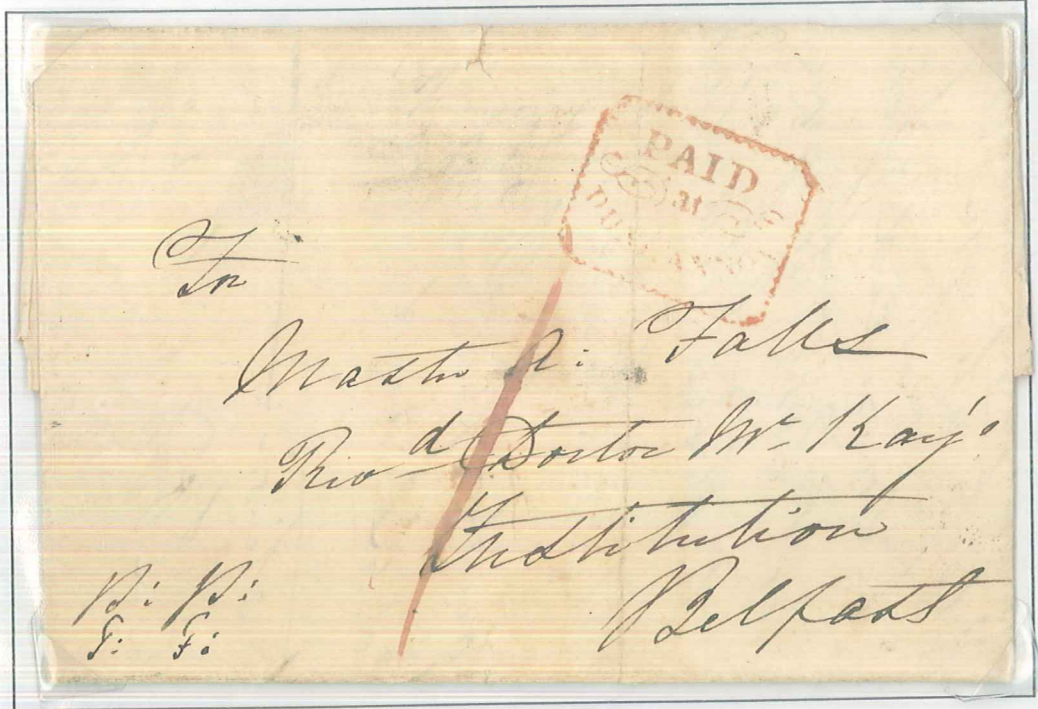 PAID
AT
DUNGANNON
To
Master A: Falls
Revd Doctor Mc Kay's
Institution
Belfast
P: P:
F: F: